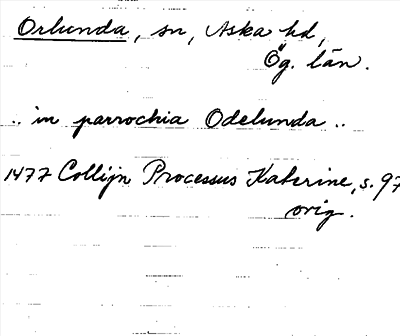 Orlunda, sn, Aska hd,
Ög. län.
.. in parrochia Odelunda ..
1477 Collijn Processus Katerine, s. 97
orig.